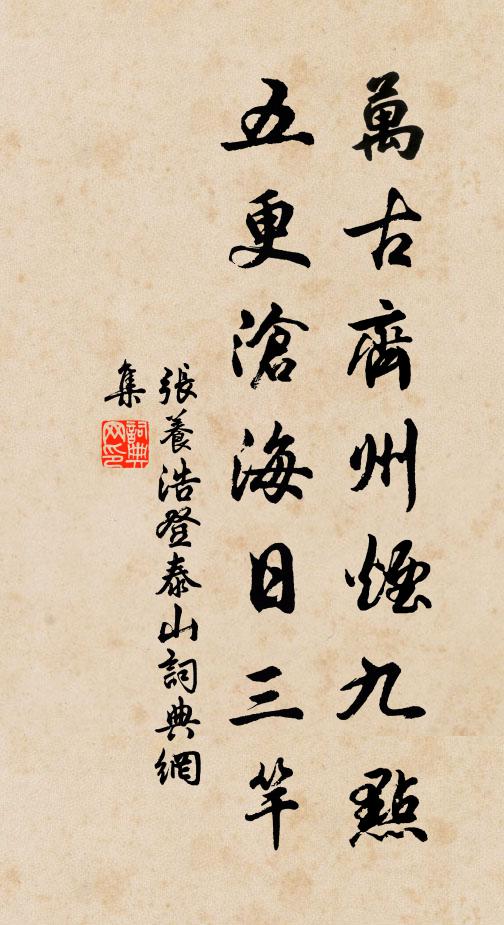 萬古齊州煙九點
五更滄海日三竿
張養浩登泰山詞典網
集
詞典
网印